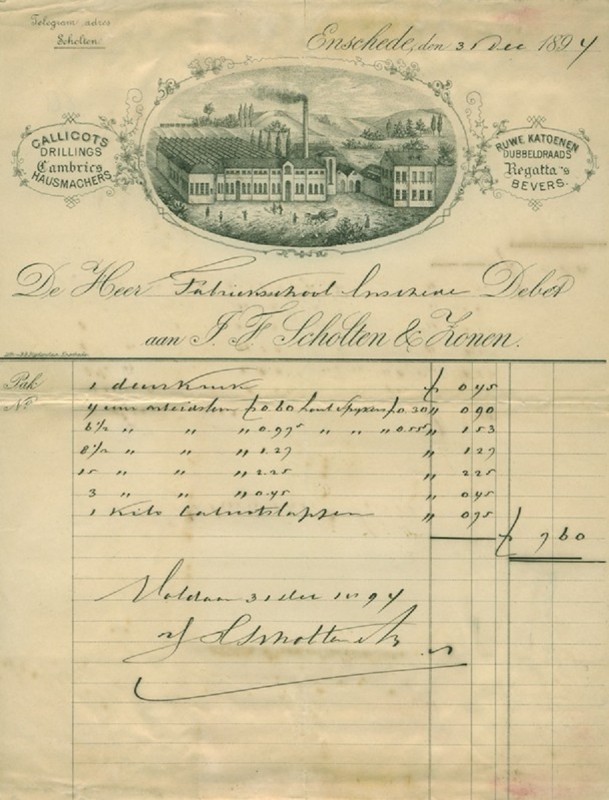 Telegram adres
Scholten.
Enschede, den 31 Dec 1894
CALLICOTS
DRILLINGS
Cambrics
HAUSMACHERS
RUWE KATOENEN
DUBBELDRAADS
Regatta's
BEVERS.
De Heer Fabrieksschool Enschede Debet
aan J. F. Scholten & Zonen.
Pak 1 deurkruk f 0 45
No 4 uur arbeidsloon f 0.60 hout spijkers f 0.30 " 0 90
6 1/2 " " " 0.975 " " " 0.55 " 1 53
8 1/2 " " " 1.27 " 1 27
15 " " " 2.25 " 2 25
3 " " " 0.45 " 0 45
1 Kilo " 0 75
f 7 60
Voldaan 31 dec 1894